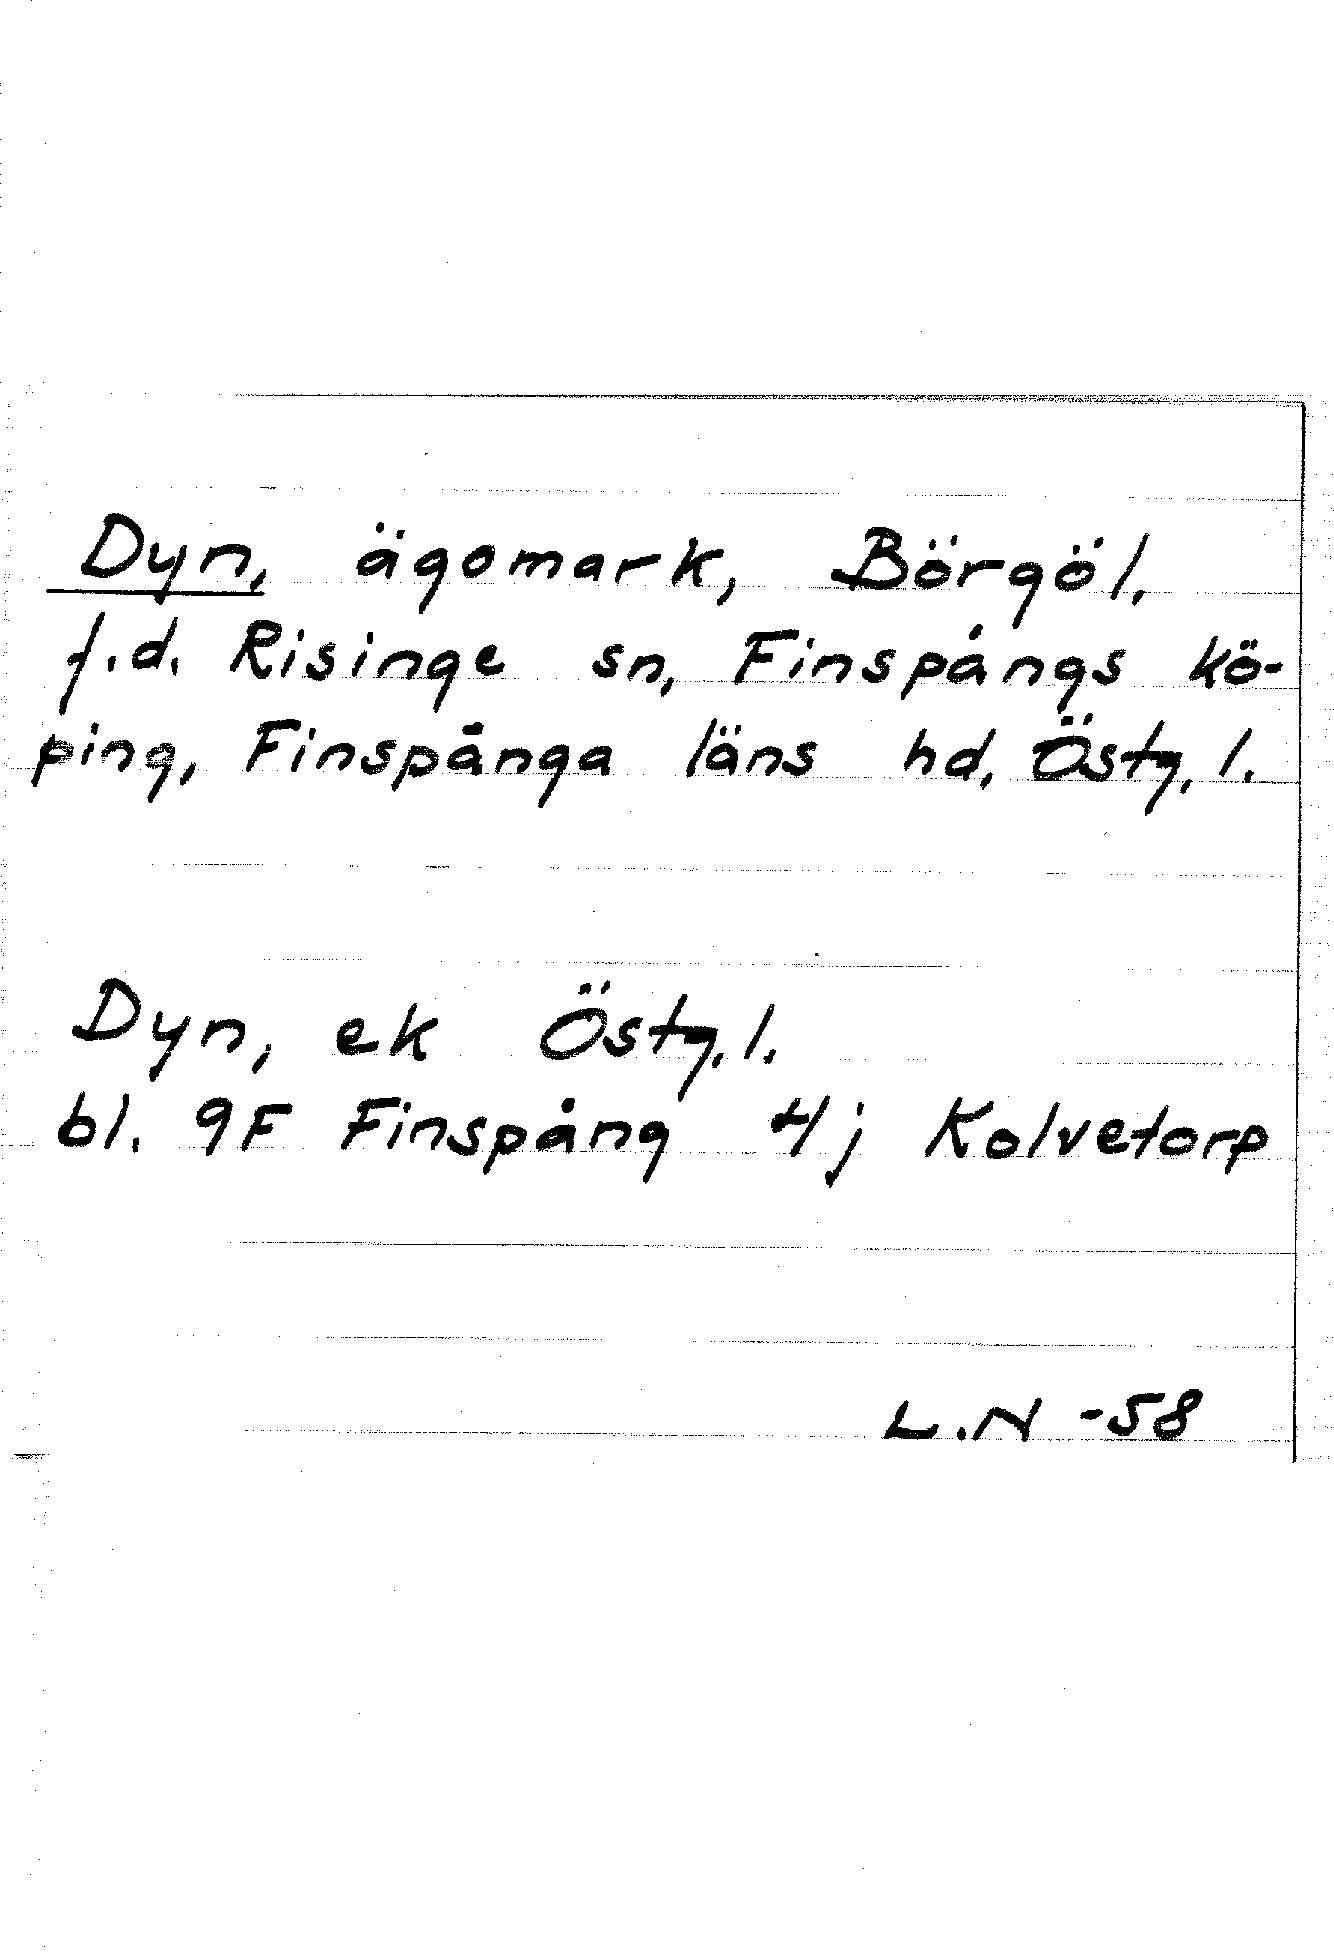 Dyn, ägomark, Börgöl,
f.d. Risinge sn, Finspångs kö-
ping, Finspånga läns hd, Östg. l.
Dyn, ek Östg. l.
bl. 9F Finspång 4j Kolvetorp
L.N -58